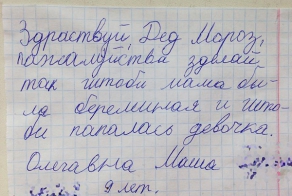 Здраствуй, Дед Мороз,
пожалуйства зделай
так штоби мама би-
ла беременая и што-
би папалась девочка.
Олегавна Маша
9 лет.